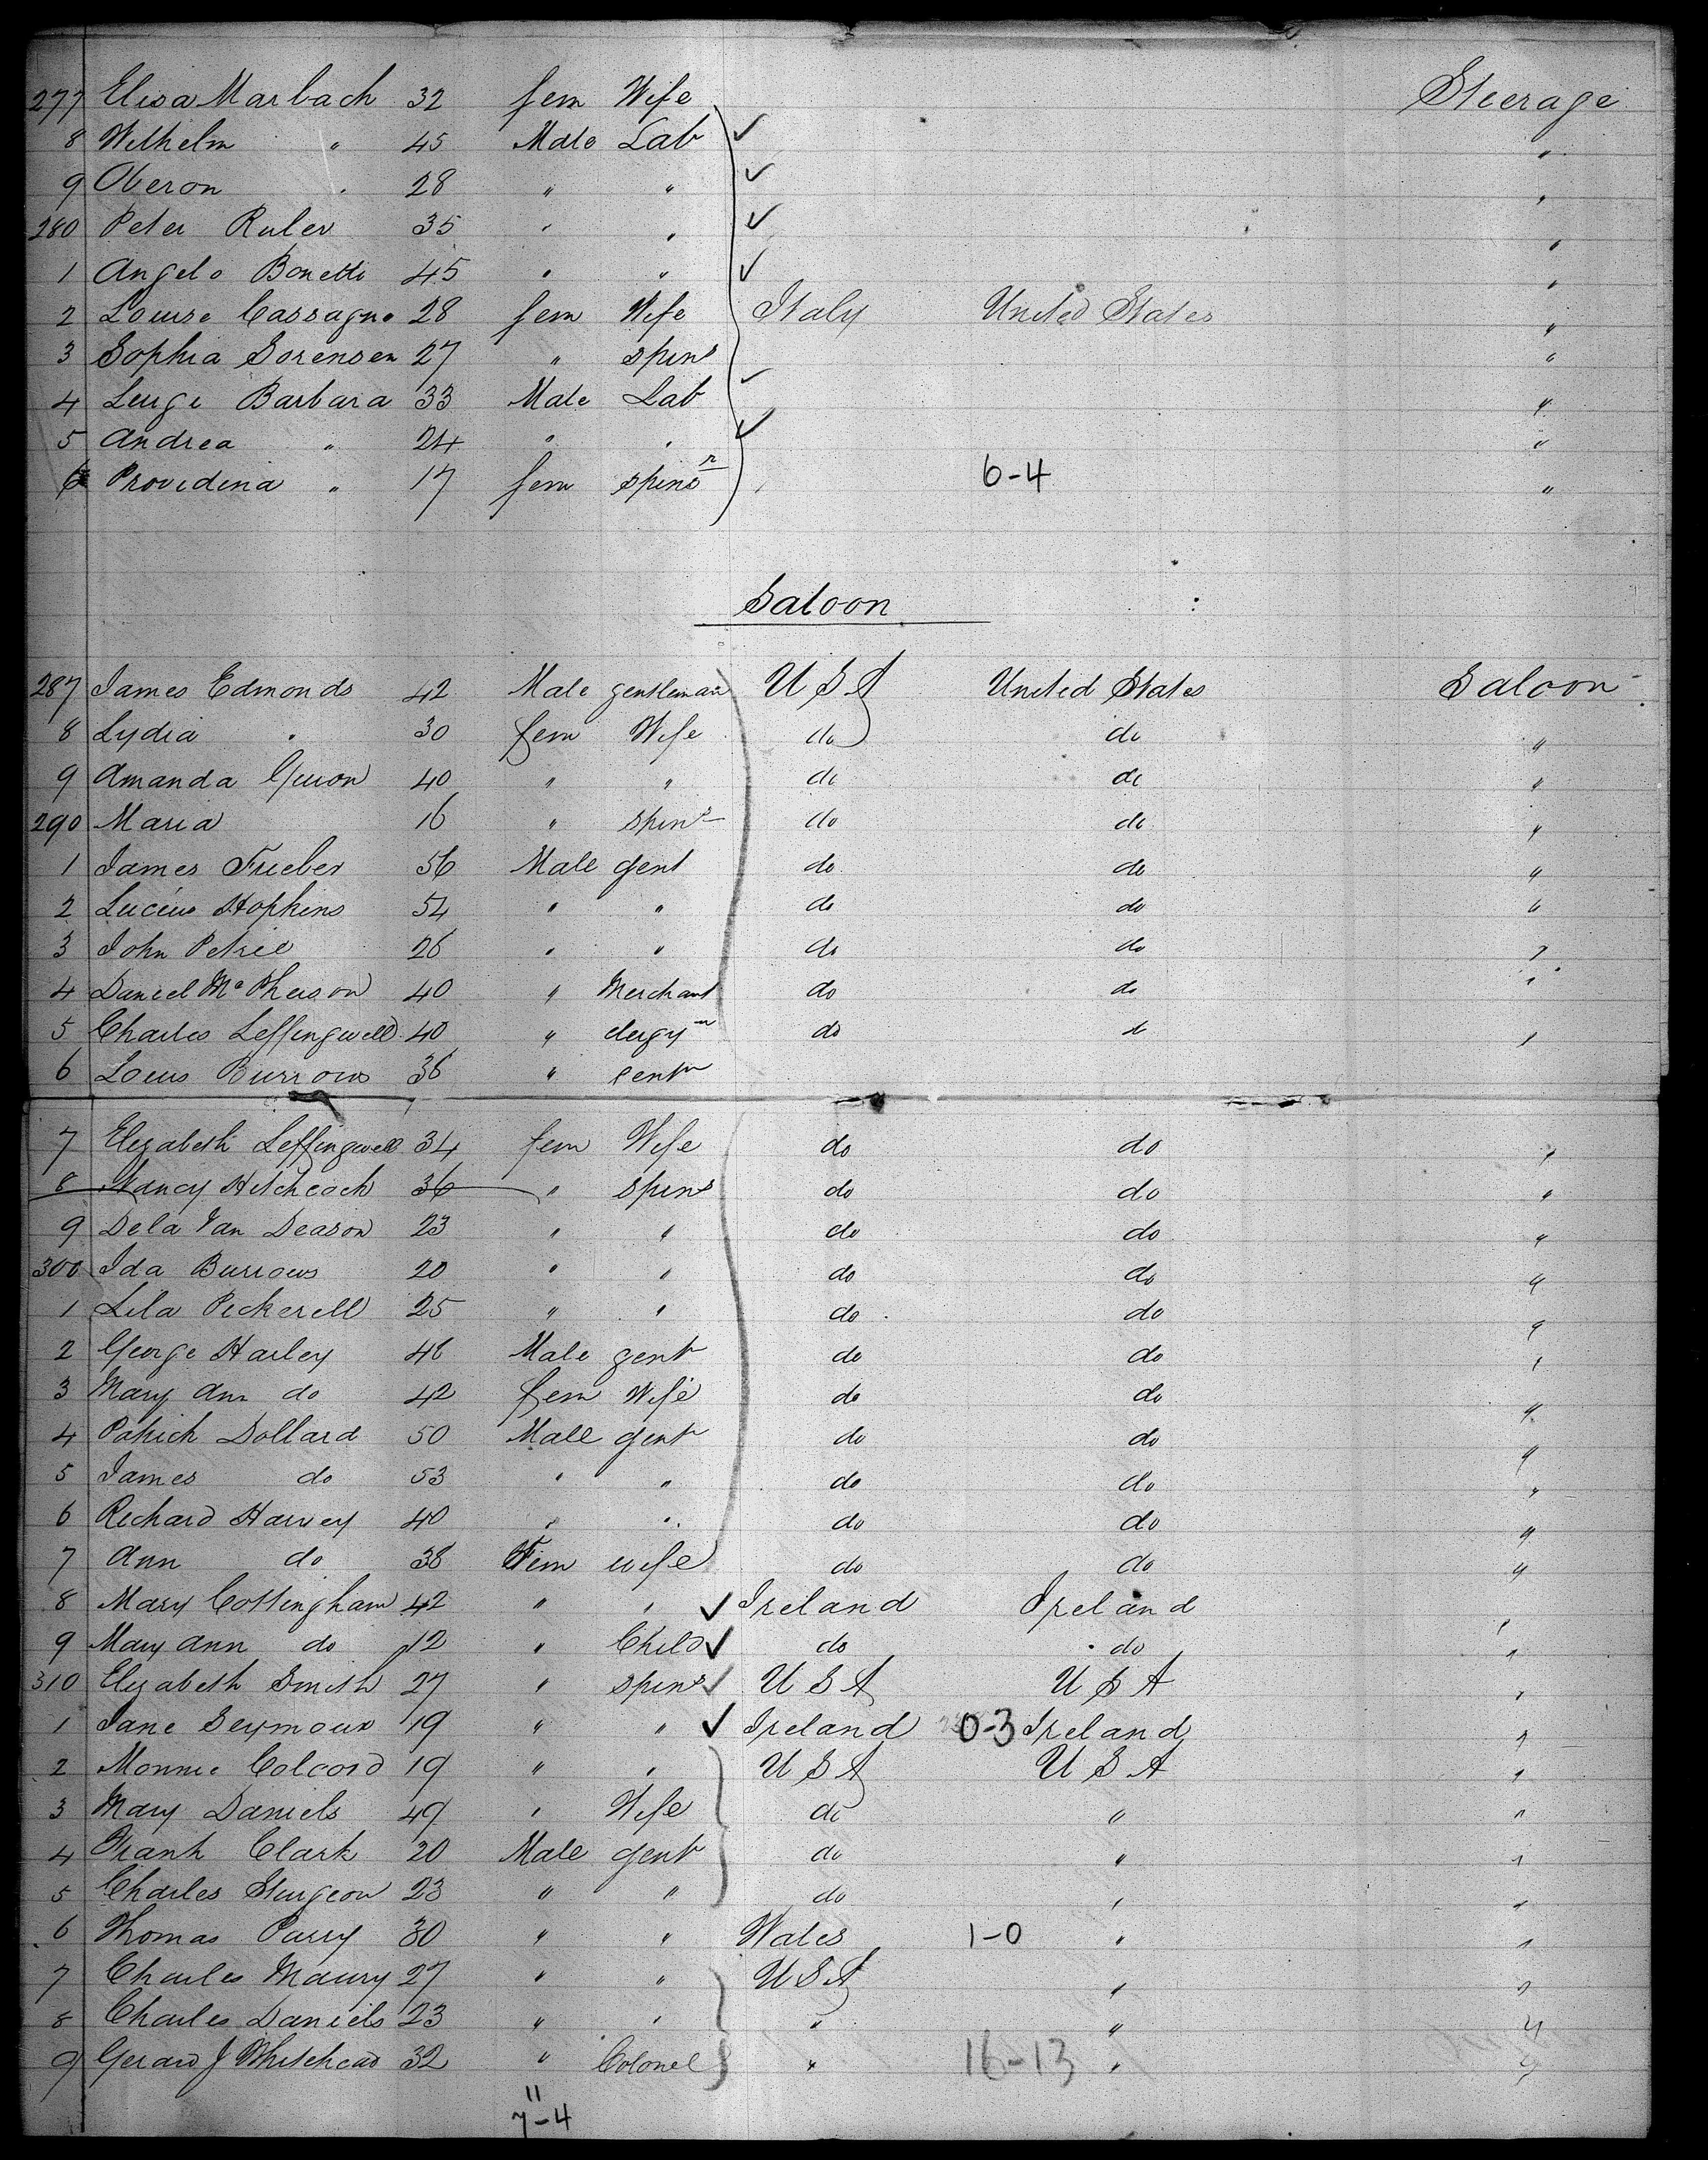 277 Elisa Marbach 32 fem Wife Steerage
8 Wilhelm " 45 Male Lab ✓ "
9 Oberon " 28 " " ✓ "
280 Peter Ruler 35 " " ✓ "
1 Angelo Bonetti 45 " " ✓ "
2 Louise Cassagne 28 fem Wife Italy United States "
3 Sophia Sorensen 27 " spins "
4 Leuge Barbara 33 Male Lab ✓ "
5 Andrea " 24 " " ✓ "
6 Providena " 17 fem spinsr 6-4 "
Saloon
287 James Edmonds 42 Male gentleman U S A United States Saloon
8 Lydia " 30 fem Wife do do "
9 Amanda Guion 40 " " do do "
290 Maria 16 " spins do do "
1 James Frieber 56 Male gent do do "
2 Lucius Hopkins 54 " " do do "
3 John Petrie 26 " " do do "
4 Daniel McPherson 40 " Merchant do do "
5 Charles Leffingwell 40 " clergyn do do "
6 Louis Burrows 36 " gentn
7 Elizabeth Leffingwell 34 fem Wife do do "
8 Nancy Hitchcock 36 " spins do do "
9 Dela Van Deason 23 " " do do "
300 Ida Burrows 20 " " do do "
1 Lila Pickerell 25 " " do do "
2 George Harley 48 Male gent do do "
3 Mary Ann do 42 fem Wife do do "
4 Patrick Dollard 50 Male gent do do "
5 James do 53 " " do do "
6 Richard Harvey 40 " " do do "
7 Ann do 38 Fem wife do do "
8 Mary Cottingham 42 " " ✓ Ireland Ireland "
9 Mary Ann do 12 " Child ✓ do do "
310 Elizabeth Smith 27 " spins ✓ U S A U S A "
1 Jane Seymour 19 " " ✓ Ireland 0-3 Ireland "
2 Monnie Colcord 19 " " U S A U S A "
3 Mary Daniels 49 " Wife do " "
4 Frank Clark 20 Male gent do " "
5 Charles Sturgeon 23 " " do " "
6 Thomas Parry 30 " " Wales 1-0 " "
7 Charles Maury 27 " " U S A " "
8 Charles Daniels 23 " " " " "
9 Gerard J Whitehead 32 " Colonel " 16-13 " "
11
7-4